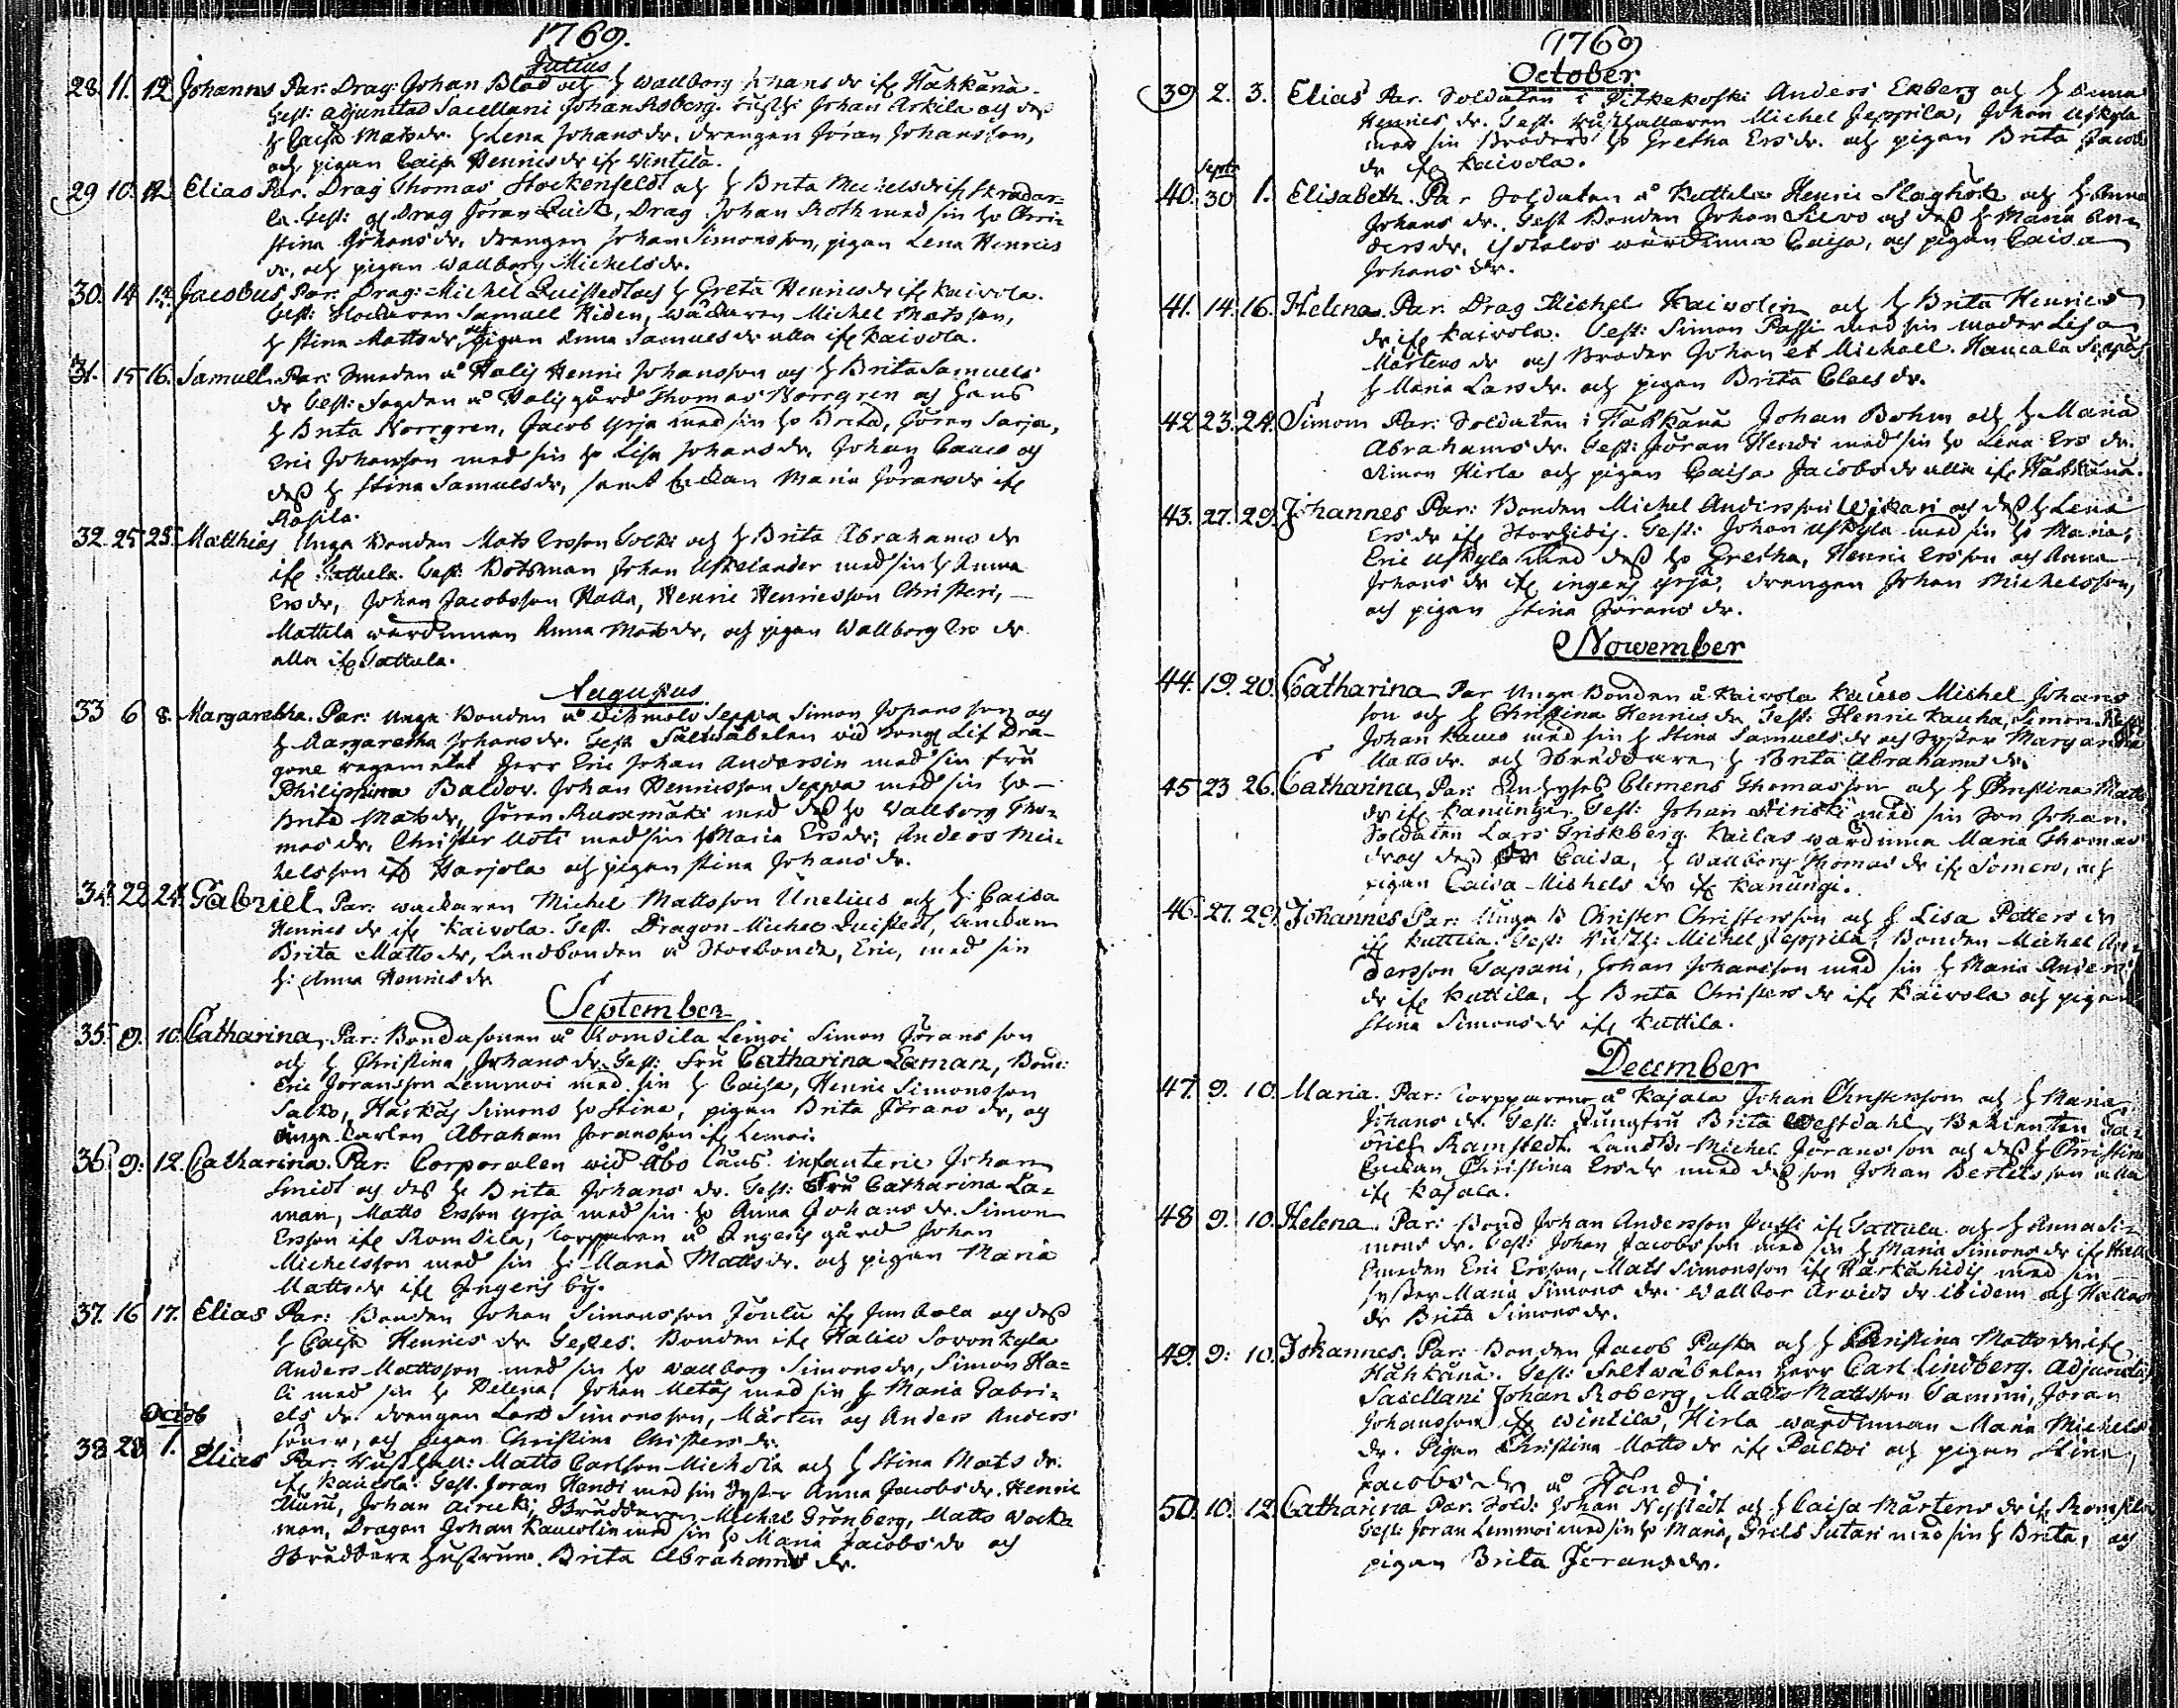 1769.
Julius
28. 11. 12. Johannes Par: Drag: Johan Blad och h Wallborg Johans dr ifr Hahkana.
test: adjunctus Sacellani Johan Roberg. rusth: Johan Arkila och des
h Caisa Matsdr. h Lena Johansdr. drengen Jöran Johansson,
och pigan Caisa Henricsdr ifr Wintila.
29 10. 12 Elias Par. Drag Thomas Stockenfeldt och h Brita Michelsdr ifr Skrädar=
la. test: Drag Jöran Quist, Drag Johan Roth med sin ho Chri=
stina Johansdr, drengen Johan Simonsson, pigan Lena Henrics
dr, och pigan Wallborg Michelsdr.
30. 14 14. Jacobus. Par: Drag: Michel Quistedt och h Greta Henricsdr ifr Kaivola.
Test: Klockaren Samuel Widen, Michel Matsson,
h Stina Mattsdr, och pigan Anna Samuelsdr alla ifr Kaivola.
31. 15 16. Samuel. Par: Smeden å Halis Henric Johansson och h Brita Samuels
dr test: Fogden å Halis gård Thomas Norrgren och hans
h Brita Norrgren, Jacob Yrja med sin ho Brita, Jöran Sarja,
Eric Johansson med sin ho Lisa Johansdr. Johan Cauco och
dess h Stina Samuelsdr, samt Enckan Maria Göransdr ifr
Rosila.
32. 25 25. Matthias Unga Bonden Mats Ersson och h Brita Abrahams dr
ifr Tattula. Test: Botsman Johan Uskelander med sin h Anna
Ersdr, Johan Jacobsson Halla, Henric Henricsson Christeri,
Mattila wärdinnan Anna Matsdr, och pigan Wallborg Ers dr
alla ifr Tattula.
Augustus
33 6 8. Margaretha. Par: Unga Bonden å Seppa Simon Johansson och
h Margaretha Johansdr. Test Fältwäbelen vid Lif Dra=
gone regemetet Herr Eric Johan Andersin med sin fru
Philippina Baldov. Johan Henricsson Seppa med sin ho
Brita Matsdr, Jöran Ruxmäki med dess ho Wallborg Tho=
mas dr. Christer Uoti med sin h Maria Ersdr; Anders Mic=
kelsson ifr Harjola och pigan Stina Johans dr.
34. 22 24. Gabriel Par: Michel Mattsson Unelius och h: Caisa
Henrics dr ifr Kaivola. Test. Dragon Michel Quistedt,
Brita Mattsdr, Landbonden å Storbonde, Eric, med sin
h: Anna Henricsdr
September
35. 9. 10. Catharina. Par: Bondasonen å Romsila Lemoi Simon Jöransson
och h Christina Johansdr. Test: Fru Catharina Laman, Bond:
Eric Joransson Lemmoi med sin h Caisa, Henric Simonsson
Salko, Simons ho Stina, pigan Brita Jörans dr, och
unga karlen Abraham Joransson ifr Lemoi.
36. 9: 12. Catharina. Par: Corporalen wid Åbo Läns infanterie Johan
Smidt och des h Brita Johans dr. Test: Fru Catharina La=
man, Matts Ersson Yrja med sin ho Anna Johans dr. Simon
Ersson ifr Romsila, Torpparen å Ingeris gård Johan
Michelsson med sin h: Maria Mattsdr. och pigan Maria
Mattsdr ifr Ingeris by.
37. 16 17. Elias Par: Bonden Johan Simonsson Joulu ifr och dess
h Caisa Henrics dr Testes. Bonden ifr Halico Sovonkyla
Anders Mattsson med sin ho Wallborg Simonsdr, Simon Ha=
li med sin h Helena, Johan Metäs med sin h Maria Gabri=
els dr. drengen Lars Simonsson, Mårten och Anders Anders
söner, och pigan Christina Christersdr.
Octob
38 28 1. Elias Par: Rusthåll: Matts Carlsson Michola och h Stina Mats dr.
ifr Kaivola. Test. Joran Hendi med sin Syster Anna Jacobsdr. Henric
Johan Skräddaren Michel Grönberg, Matts
man, Dragon Johan Kauvolin med sin ho Maria Jacobsdr och
Skräddare hustrun Brita Abrahams dr.
1769
October
39 2. 3. Elias Par. Soldaten i Pitkekoski Anders Ekberg och h Anna
Henrics dr. Test. Rusthållaren Michel Jeppila, Johan Uskyla
med sin Broders ho Gretha Ersdr. och pigan Brita Jacobs
dr ifr Kaivola.
Septr
40. 30 1. Elisabeth. Par Soldaten å Kuttila Henric Slaghök och h Anna
Johans dr. Test Bonden Johan Silvo och dess h Maria An=
dersdr, Isotalos wärdinna Caisa, och pigan Caisa
Johans dr.
41. 14. 16. Helena. Par. Drag Michel Kaivolin och h Brita Henrics
dr ifr Kaivola. Test: Simon Passi med sin moder Lisa
Mårtens dr och Broder Johan et Michael. Haucala
h Maria Larsdr. och pigan Brita Claesdr.
42 23. 24. Simon Par: Soldaten i Hahkana Johan Bohm och h Maria
Abrahamsdr. Test: Jöran Hendi med sin ho Lena Ers dr.
Simon Hirla och pigan Caisa Jacobsdr alla ifr Hahkana.
43. 27. 29. Johannes Par: Bonden Michel Andersson Wikari och dess h Lena
Ersdr ifr Storhidis. Test: Johan Uskyla med sin ho Maria,
Eric Uskyla med dess ho Gretha, Henric Ersson och Anna
Johans dr ifr ingeris Yrja, drengen Johan Michelsson,
och pigan Stina Jörans dr.
November
44. 19. 20. Catharina Par Unga Bonden å Kaivola Kauco Michel Johans
son och h Christina Henricsdr Test: Henric Kauha, Simon
Johan Kauco med sin h Stina Samuelsdr och Syster Margareta
Mattsdr. och Skräddaren h Brita Abrahamsdr.
45 23 26. Catharina Par: Inhyses Clemens Thomasson och h Christina Mats
dr ifr Kanungi. Test: Johan med sin Son Johan.
Soldaten Lars Friskberg. Kailas wärdinna Maria Thomas
dr och dess dr Caisa, h Wallborg Thomas dr ifr Somero, och
pigan Caisa Michels dr ifr Kanungi.
46. 27. 29. Johannes Par: Unga B Christer Christersson och h Lisa Petters dr
ifr Kuttila. Test: Rusth: Michel Jeppila, Bonden Michel An=
dersson Tapani, Johan Johansson med sin h Maria Anders
dr ifr Kuttila, h Brita Christers dr ifr Kaivola och pigan
Stina Simons dr ifr Kuttila.
December
47. 9. 10. Maria. Par: Torpparen å Kajala Johan Christersson och h Maria
Johans dr. Test: Jungfru Brita Westdahl, Betienten Ga=
briel Ramstedt. Landb: Michel Jöransson och dess h Christina
Enckan Christina Ersdr med dess son Johan Bertelsson alla
ifr Kajala.
48 9. 10. Helena. Par: Bond Johan Andersson Jussi ifr Tattula och h Anna Si=
mons dr. Test: Johan Jacobsson med sin h Maria Simons dr ifr
Smeden Eric Ersson, Mats Simonsson ifr Härkähidis med sin
syster Maria Simons dr. Wallbor Arvids dr ibidem och
dr Brita Simonsdr.
49. 9: 10. Johannes. Par: Bonden Jacob Paska och h Christina Mattsdr ifr
Hahkana. Test: Feltwäbelen Herr Carl Lindberg. Adjunctus
Sacellani Johan Roberg, Matts Mattsson Tammi, Jöran
Johansson ifr Wintila, Hirla wärdinnan Maria Michels
dr. Pigan Christina Matts dr ifr och pigan Stina
Jacobs dr å Händi
50. 10. 12. Catharina Par: Sold: Johan Nystedt och h Caisa Mårtens dr ifr Romsila
Test: Joran Lemmoi med sin ho Maria, Grels Sutari med sin h Brita, och
pigan Brita Jöransdr.